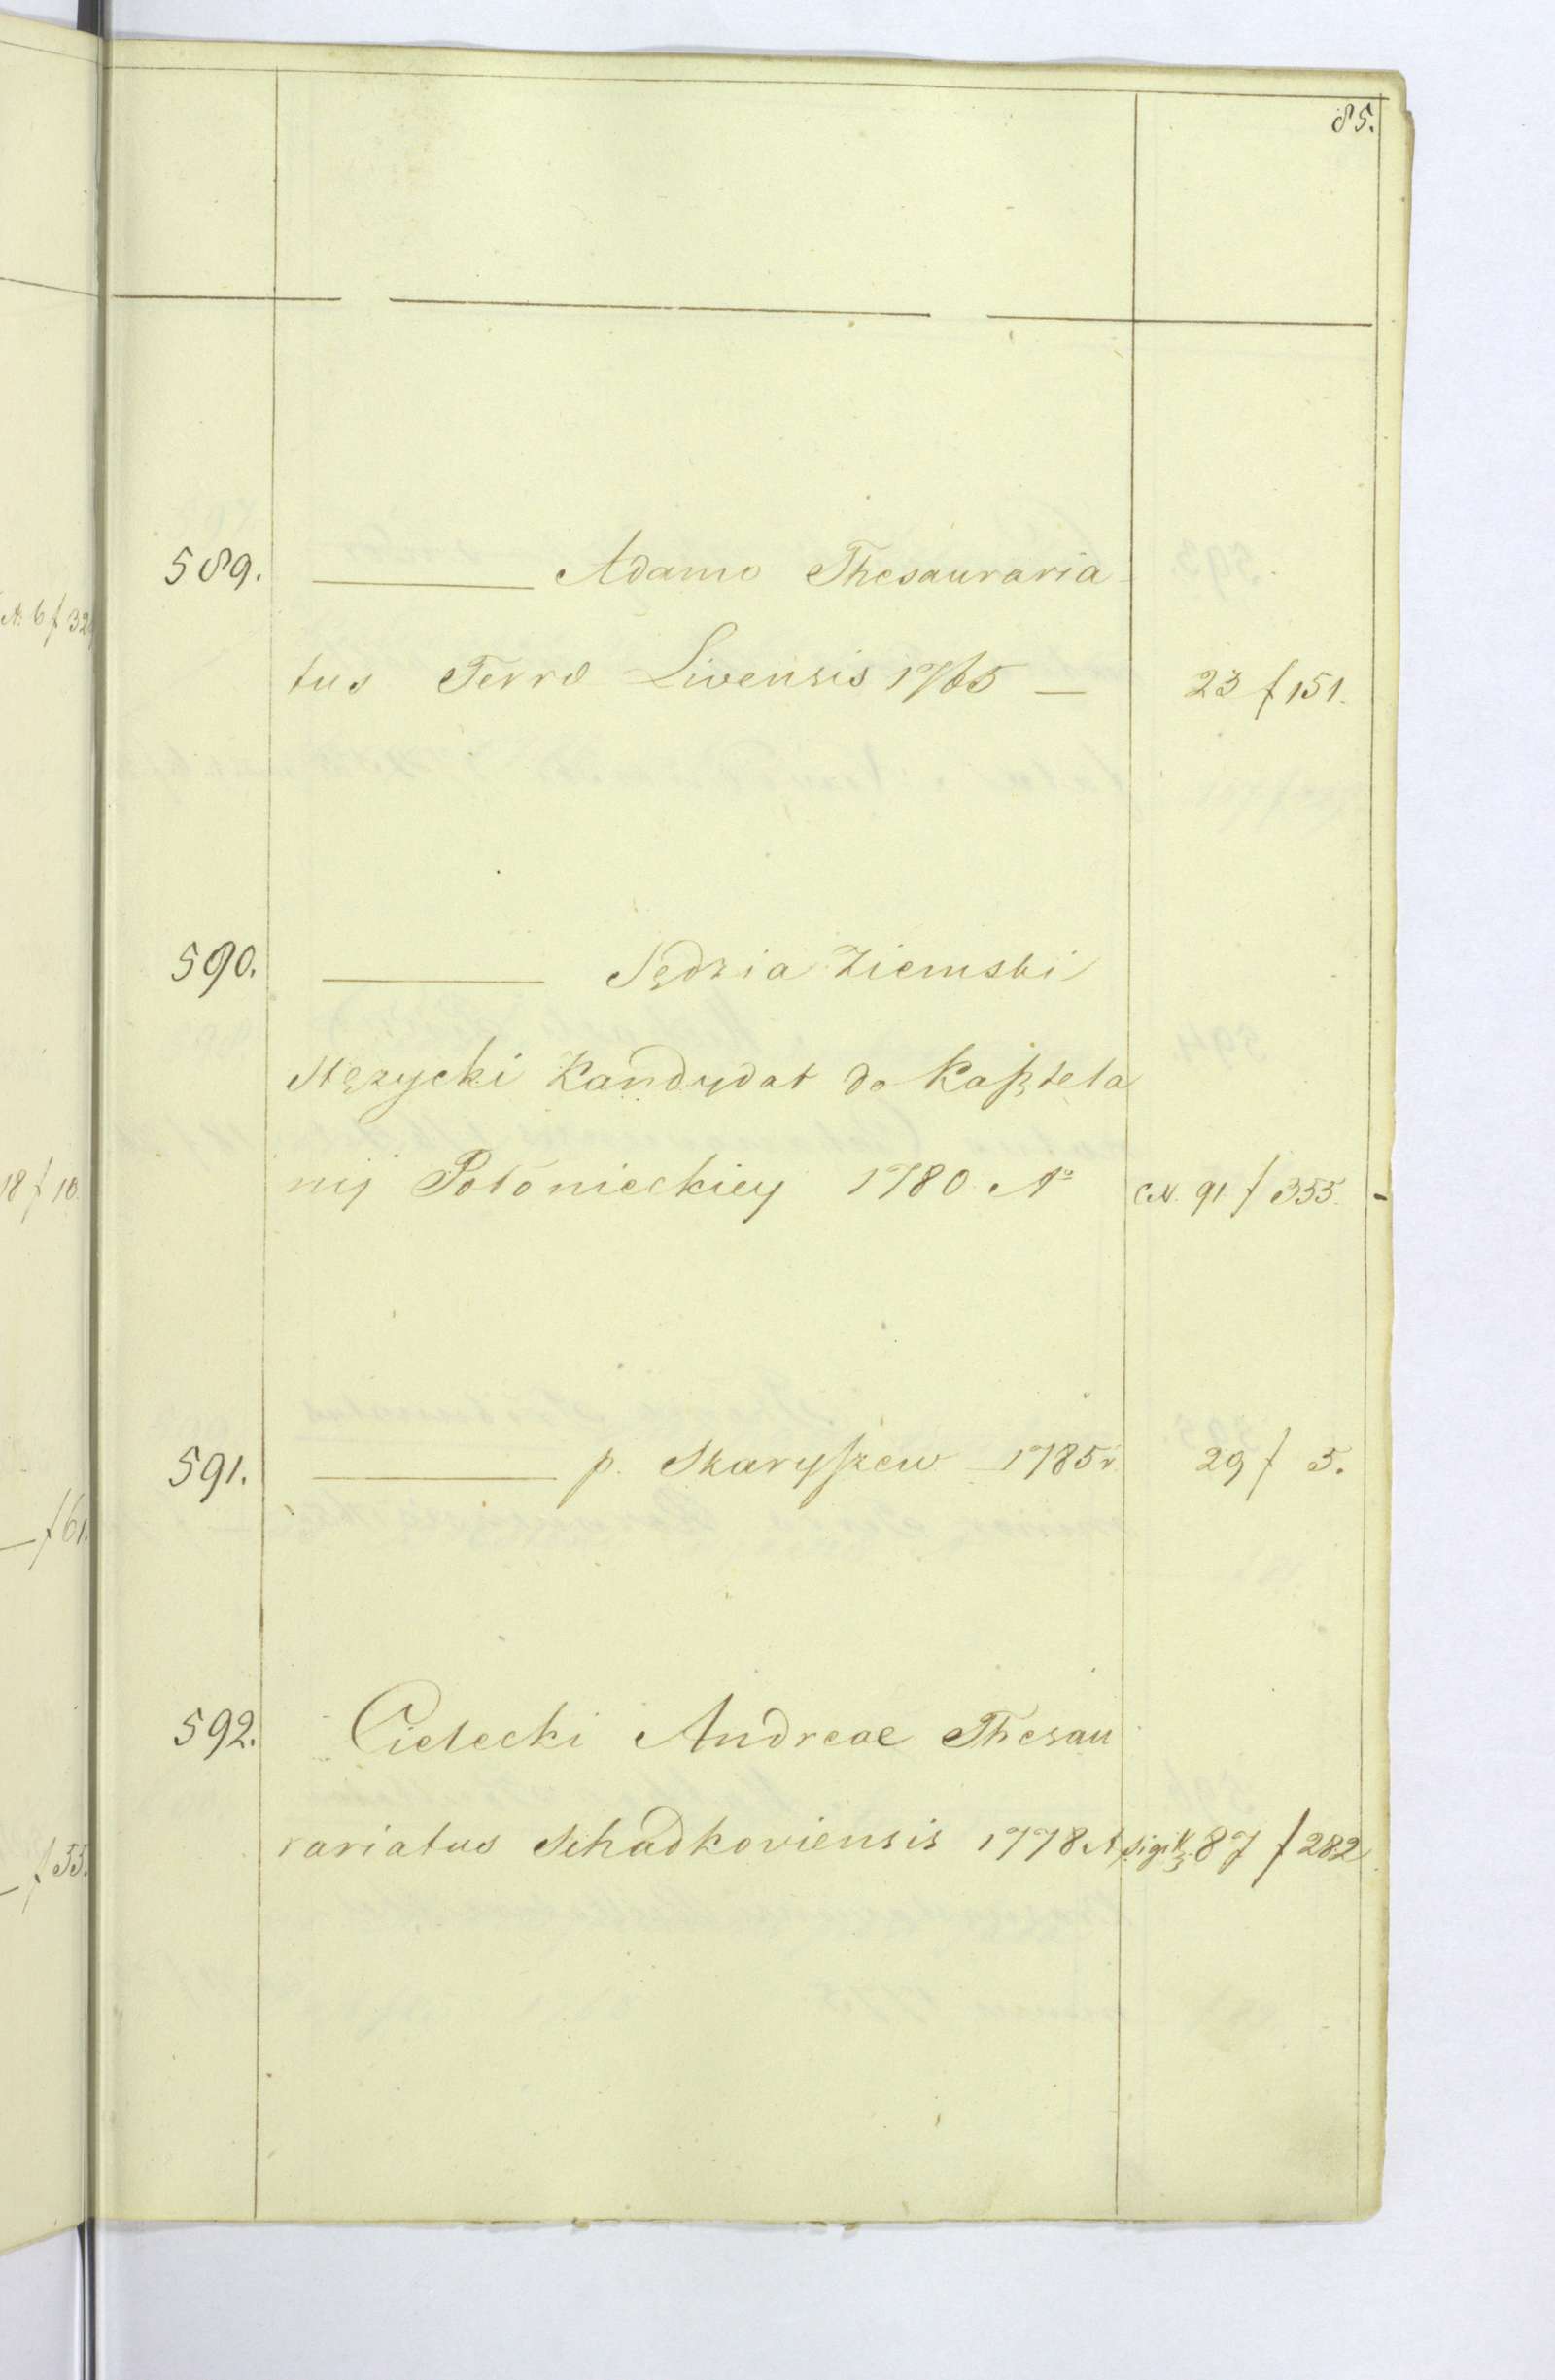 85.
589. ——— Adamo Thesauraria
tus Terræ Livensis 1765 — 23 f 151.
590. ——— Sędzia Ziemski
Stęzycki Kandydat do Kaßztela
nij Połonieckiey 1780 Aº CN. 91 f 355.
591. ——— p. Skaryszew 1785 r 29 f 5.
592. Cielecki Andreae Thesau
rariatus Schadkoviensis 1778 A 87 f 282
A. 6 f 32
18 f 10.
— f 61.
— f 55.